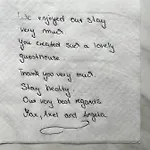 We enjoyed our stay
very much
you created such a lovely
guesthouse
Thank you very much.
Stay healty
Our very best regards
Max, Axel and Angela